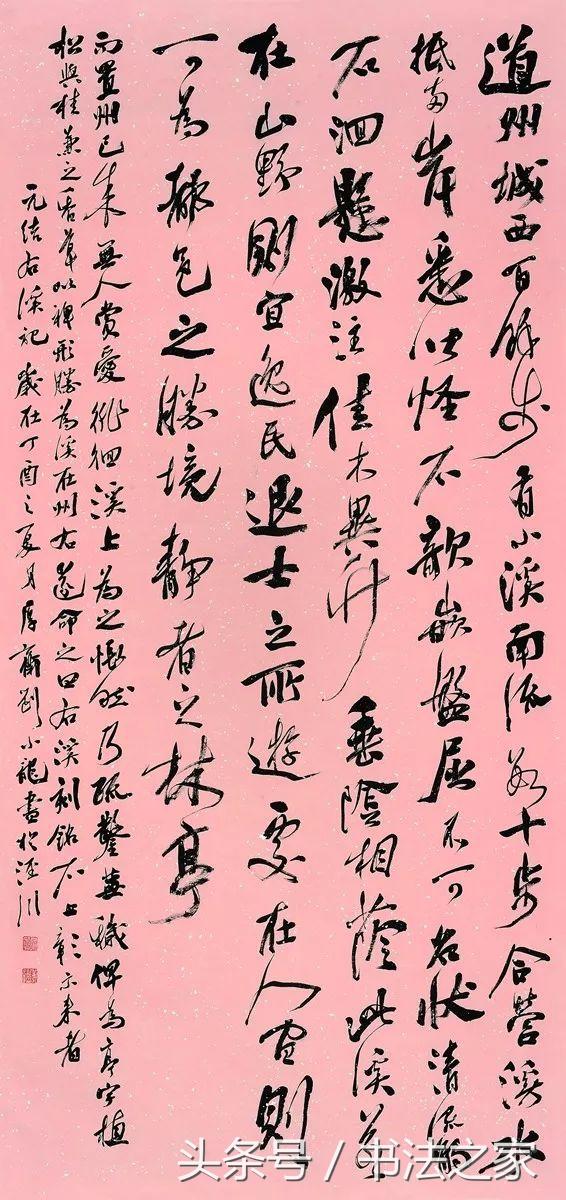 道州城西百餘步有小溪南流數十步合營溪水
抵兩岸悉皆怪石欹嵌盤屈不可名狀清流觸
石洄懸激注佳木異竹垂陰相蔭此溪若
在山野則宜逸民退士之所遊處在人間則
可為都邑之勝境靜者之林亭
而置州已來無人賞愛徘徊溪上為之悵然乃疏鑿蕪穢俾為亭宇植
松與桂兼之香草以裨形勝為溪在州右遂命之曰右溪刻銘石上彰示來者
元結右溪記歲在丁酉之夏月齋劉小龍書於涇川
头条号 / 书法之家